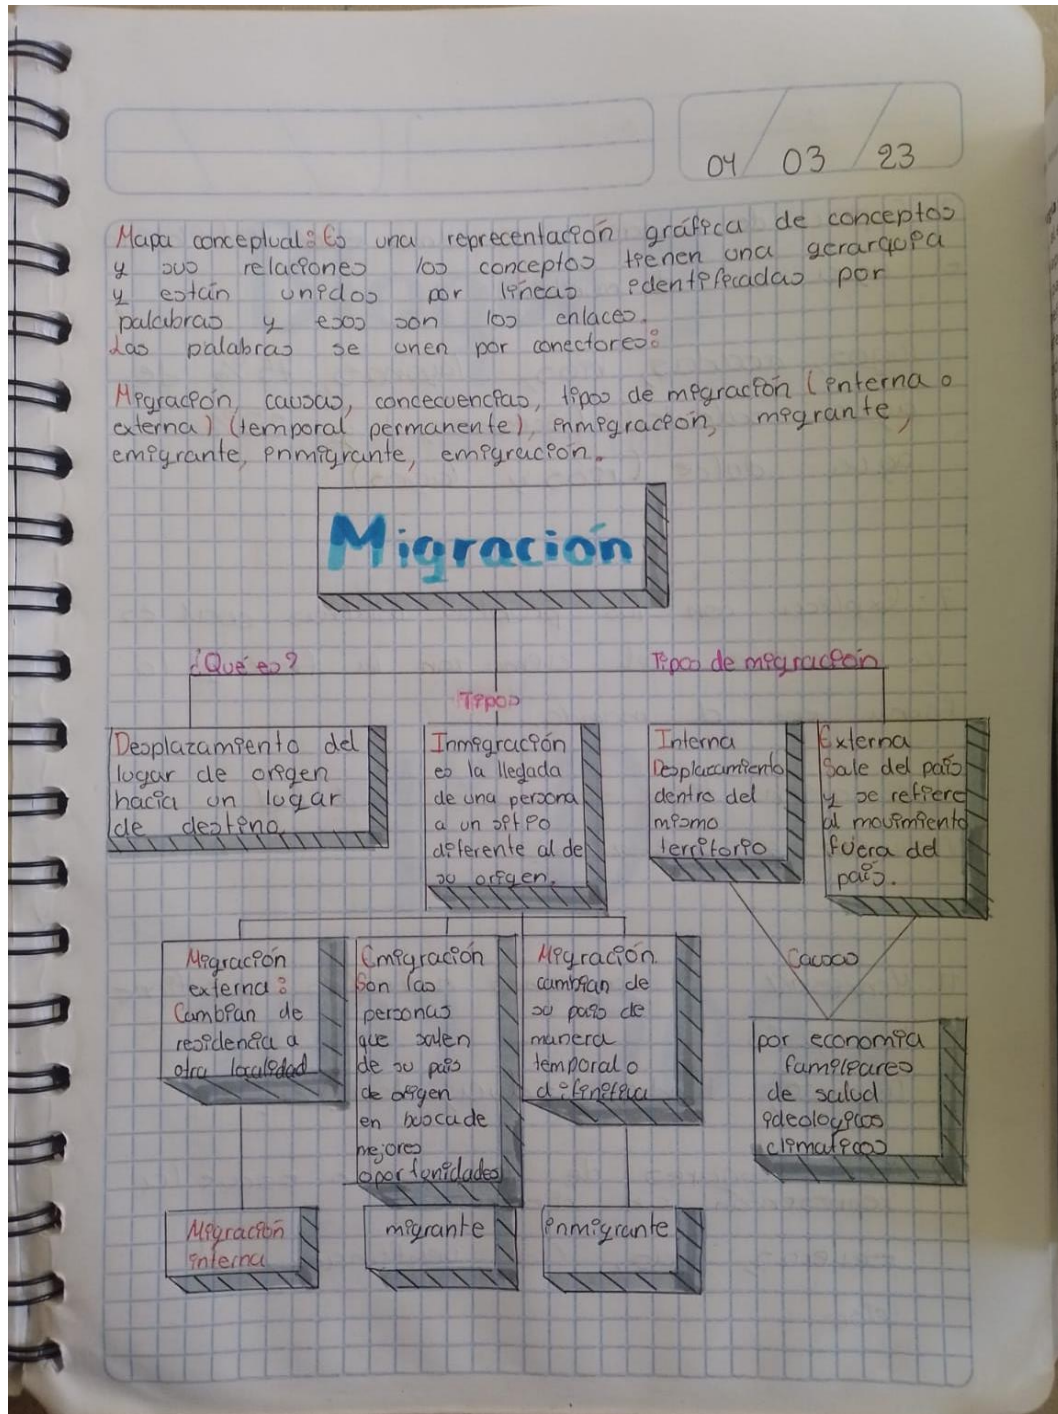 04 / 03 / 23
Mapa conceptual: Es una reprecentación gráfica de conceptos
y sus relaciones los conceptos tienen una gerarquia
y están unidos por líneas identificadas por
palabras y esos son los enlaces.
Las palabras se unen por conectores:
Migración, causas, condecuencias, tipos de migración (interna o
externa) (temporal permanente), inmigración, migrante,
emigrante, inmigrante, emigración.
Migración
¿Qué es?
Tipos de migración
Tipos
Desplazamiento del
lugar de origen
hacia un lugar
de destino
Inmigración
es la llegada
de una persona
a un sitio
diferente al de
su origen.
Interna
Desplazamiento
dentro del
mismo
territorio
Externa
Sale del país
y se refiere
al movimiento
fuera del
país.
Migración
externa:
Cambian de
residencia a
otra localidad
Emigración
Son las
personas
que salen
de su país
de origen
en busca de
mejores
oportunidades
Migración
cambian de
su país de
manera
temporal o
difinitiva
Causas
por economia
familiares
de salud
ideologicos
climaticos
Migración
interna
migrante
inmigrante